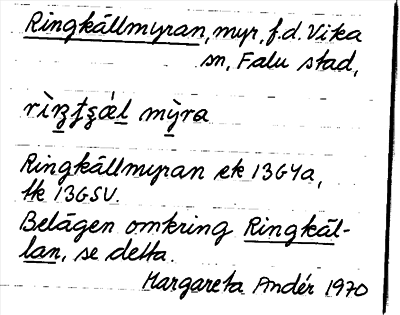 Ringkällmyran, myr, f.d. Vika
sn, Falu stad,
mỳra
Ringkällmyran ek 13G4a,
tk 13GSV.
Belägen omkring Ringkäl-
lan, se detta.
Margareta Andér 1970